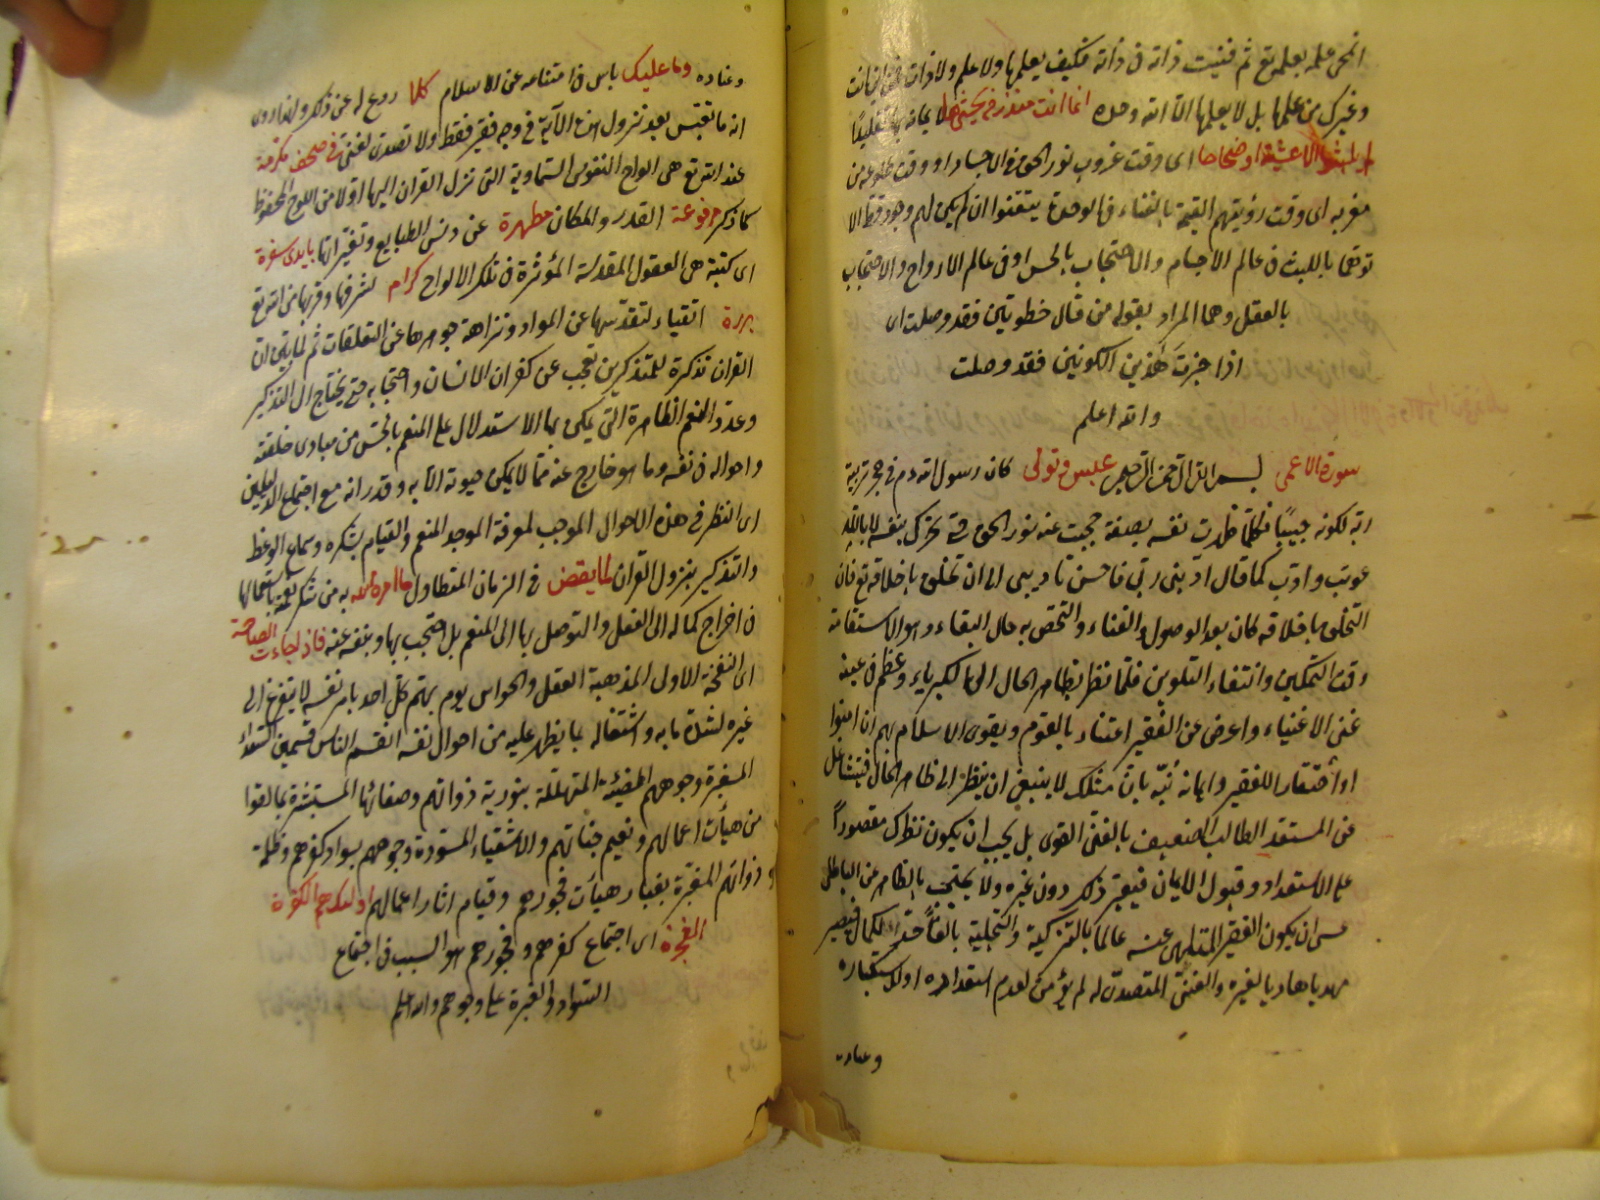 انمحى علمه بعلمه تع ثم فنيت ذاته في ذاته فكيف يعلمها ولا علم ولا ذات فمن اين انت
وغيرك من علمها بل لا يعلمها الا الله وحده انما انت منذر من يخشيها لايمانه بها تقليدا
الا عشية او ضحاها اى وقت غروب نور الحق في الاجساد او وقت طلوعه من
مغربه اى وقت رؤيتهم القيمة بالفناء في الوحدة يتيقنوا ان لم يكن لهم وجود قط الا
توهما باللبث في عالم الاجسام والاحتجاب بالحس او في عالم الارواح والاحتجاب
بالعقل وهما المراد بقوله من قال خطوتين فقد وصلت اى
اذا جزت هذين الكونين فقد وصلت
والله اعلم
سورة الاعمى بسم الله الرحمن الرحيم عبس وتولى كان رسول الله ص م في حجر تربية
ربه لكونه حبيبا فكلما ظهرت نفسه بصفة حجبت عنه نور الحق حتى تحرك بنفسه لا بالله
عوتب وادب كما قال ادبنى ربى فاحسن تاديبى الى ان تخلق باخلاقه تع فان
التخلق باخلاقه كان بعد الوصول والفناء والتحقق به حال البقاء وهو الاستقامة
وقت التمكين وانتفاء التلوين فلما نظر بظاهر الحال الى الكبرياء وعظم في عينه
غنى الاغنياء واعرض عن الفقير اعتناء بالقوم ويقوى الاسلام بهم ان امنوا
او احتقارا للفقير وايمانه نبه بان مثلك لا ينبغى ان ينظر الى ظاهر الحال فيتشاغل
عن المستعد الطالب الضعيف بالغنى القوى بل يجب ان يكون نظرك مقصورا
على الاستعداد وقبول الايمان فيعتبر ذلك دون غيره ولا يحتجب بالظاهر عن الباطن
عسى ان يكون الفقير المتلهى عنه عالما بالتزكية والتحلية بالغا حد الكمال فيصير
مهديا هاديا لغيره والغنى المتصدى له لم يؤمن لعدم استعداده او لاستكباره
وعناده
وعناده وما عليك باس في امتناعه عن الاسلام كلا ردع له عن ذلك
انه ما تعبس بعد نزول هذه الآية في وجه فقير فقط ولا تصدى لغنى في صحف مكرمة
عند الله تع هى الواح النفوس السماوية التى نزل القران اليها اولا من اللوح المحفوظ
كما ذكر مرفوعة القدر والمكان مطهرة عن دنس الطبايع وتغيراتها بايدى سفرة
اى كتبة هى العقول المقدسة المؤثرة في تلك الالواح كرام لشرفها وقربها من الله تع
بررة اتقياء لتقدسها عن المواد ونزاهة جوهرها عن التعلقات ثم لما بين ان
القران تذكرة للمتذكرين تعجب عن كفران الانسان واحتجابه حتى يحتاج الى التذكير
وعد النعم الظاهرة التى يمكن بها الاستدلال على المنعم بالحس من مبادى خلقته
واحواله في نفسه وما هو خارج عنه مما لا يمكن حيوته الا به وقدر انه مع اجتماع الدليلين
اى النظر في هذه الاحوال الموجب لمعرفة الموجد المنعم والقيام بشكره وسماع الوعظ
والتذكير بنزول القران لما يقض في الزمان المتطاول ما امره الله به من شكر نعمه باستعمالها
في اخراج كماله الى الفعل والتوصل بها الى المنعم بل احتجب بها وبنفسه عنه فاذا جاءت الصاخة
اى النفخة الاولى المذهبة العقل والحواس يوم يهتم كل احد بامر نفسه لا يتفرغ الى
غيره لشدة ما به واشتغاله بما يظهر عليه من احوال نفسه انقسم الناس قسمين السعداء
المسفرة وجوههم المضيئة المتهللة بنورية ذواتهم وصفائها المستبشرة بما لقوا
من هيأت اعمالهم ونعيم جناتهم والاشقياء المسودة وجوههم بسواد كفرهم وظلمة
ذواتهم المغبرة بغبار هيأت فجورهم وقيام اثار اعمالهم اولئك هم الكفرة
الفجرة اى اجتماع كفرهم وفجورهم هو السبب في اجتماع
السواد والغبرة على وجوههم والله اعلم